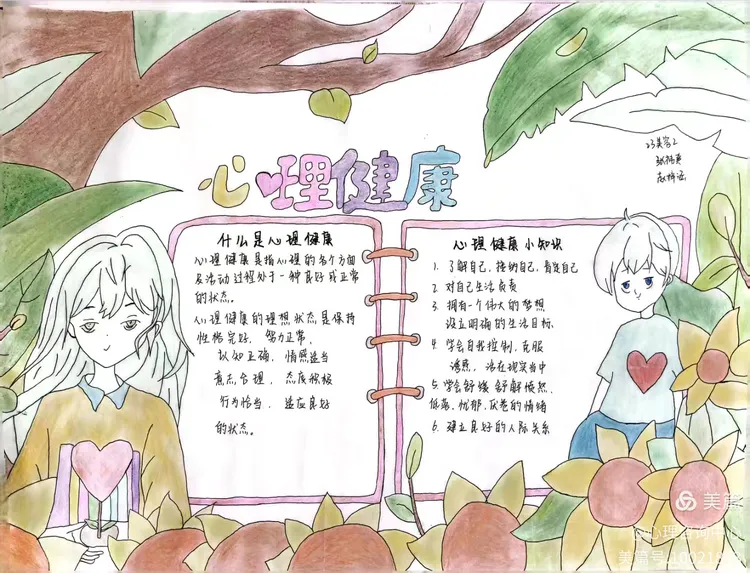 心理健康
23美容2
什么是心理健康
心理健康是指心理的各个方面
及活动过程处于一种良好或正常
的状态。
心理健康的理想状态是保持
性格完好、智力正常、
认知正确、情感适当
意志合理、态度积极
行为恰当、适应良好
的状态。
心理健康小知识
1. 了解自己,接纳自己,肯定自己
2. 对自己生活负责
3. 拥有一个伟大的梦想
设立明确的生活目标
4. 学会自我控制,克服
诱惑,活在现实当中
5. 学会舒缓
低落、忧郁、厌卷的情绪
6. 建立良好的人际关系
美篇
心理咨询
美篇号